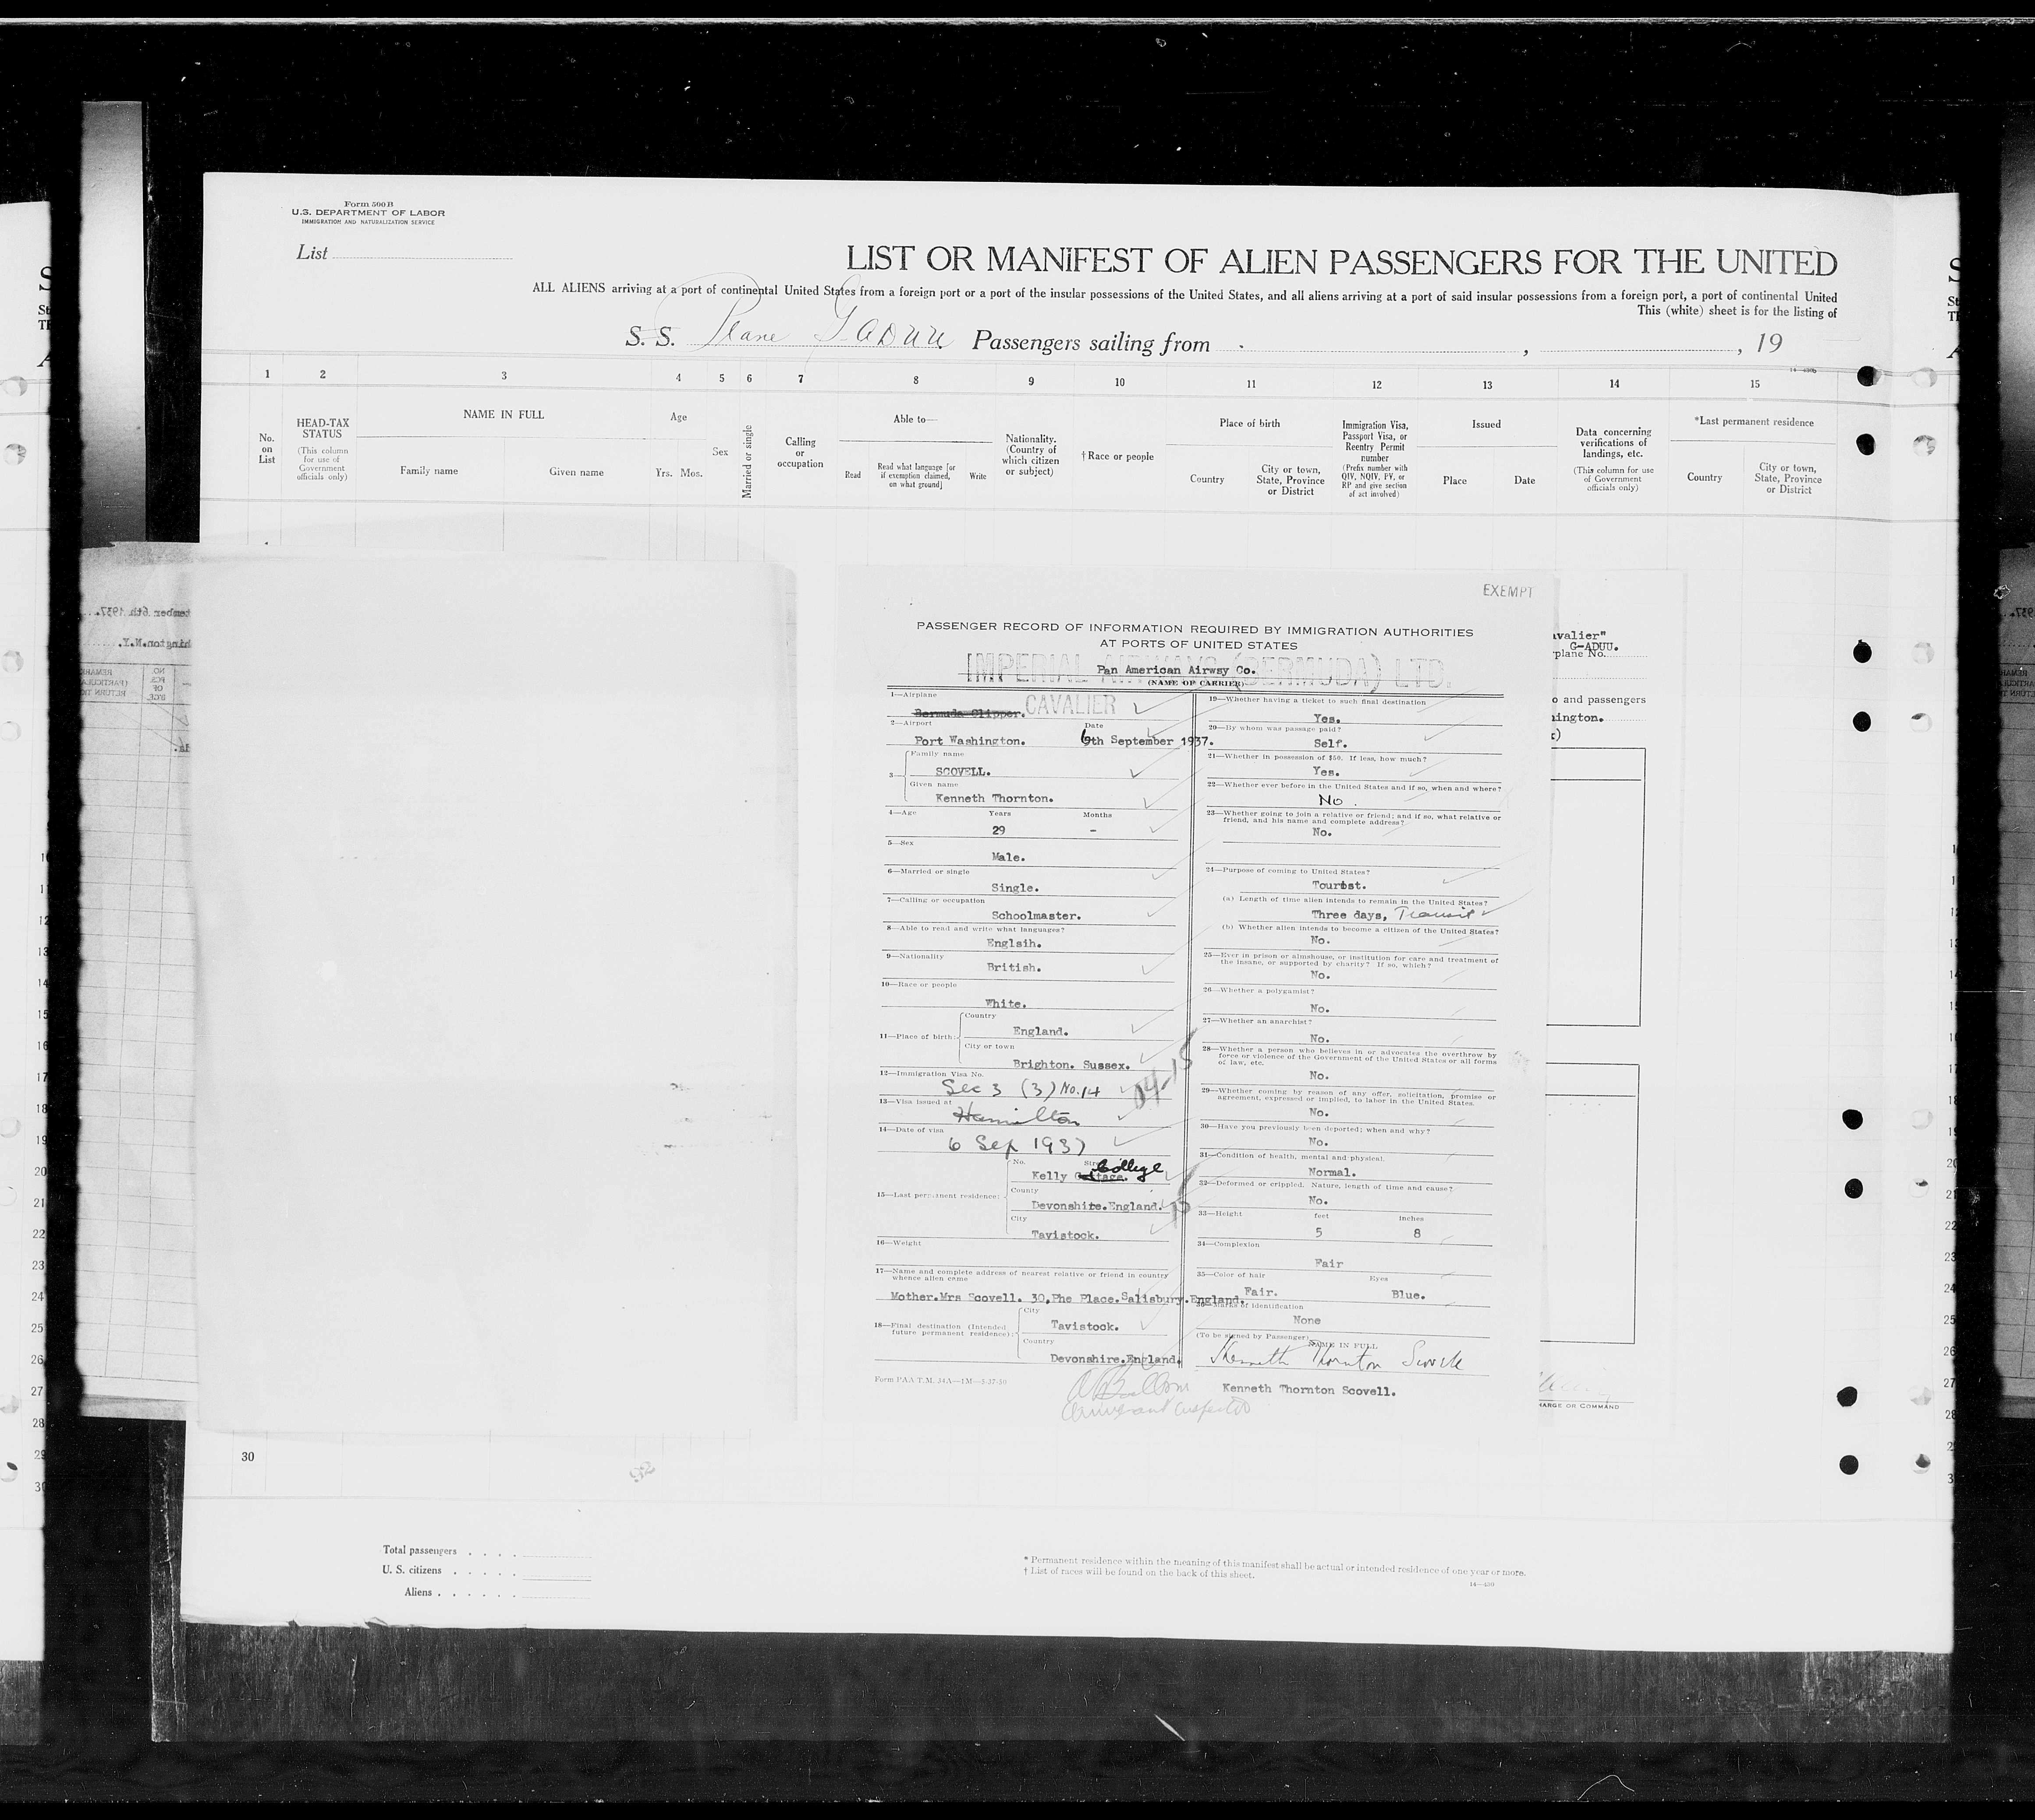 Form 500 B
U.S. DEPARTMENT OF LABOR
IMMIGRATION AND NATURALIZATION SERVICE
List
LIST OR MANIFEST OF ALIEN PASSENGERS FOR THE UNITED
ALL ALIENS arriving at a port of continental United States from a foreign port or a port of the insular possessions of the United States, and all aliens arriving at a port of said insular possessions from a foreign port, a port of continental United
This (white) sheet is for the listing of
S. S. Plane G-aduu Passengers sailing from , , 19
1 2 3 4 5 6 7 8 9 10 11 12 13 14 15
No. on List
HEAD-TAX STATUS
(This column for use of Government officials only)
NAME IN FULL
Family name
Given name
Age
Yrs. Mos.
Sex
Married or single
Calling or occupation
Able to—
Read
Read what language [or if exemption claimed, on what ground]
Write
Nationality. (Country of which citizen or subject)
† Race or people
Place of birth
Country
City or town, State, Province or District
Immigration Visa, Passport Visa, or Reentry Permit number
(Prefix number with QIV, NQIV, PV, or RP and give section of act involved)
Issued
Place
Date
Data concerning verifications of landings, etc.
(This column for use of Government officials only)
*Last permanent residence
Country
City or town, State, Province or District
EXEMPT
PASSENGER RECORD OF INFORMATION REQUIRED BY IMMIGRATION AUTHORITIES
AT PORTS OF UNITED STATES
IMPERIAL AIRWAYS (BERMUDA) LTD.
Pan American Airway Co.
(NAME OF CARRIER)
1—Airplane
Bermuda Clipper. CAVALIER
2—Airport Date
Port Washington. 6th September 1937.
3— Family name
SCOVELL.
Given name
Kenneth Thornton.
4—Age Years Months
29 -
5—Sex
Male.
6—Married or single
Single.
7—Calling or occupation
Schoolmaster.
8—Able to read and write what languages?
Englsih.
9—Nationality
British.
10—Race or people
White.
11—Place of birth: Country
England.
City or town
Brighton. Sussex.
12—Immigration Visa No.
Sec 3 (3) No. 14
13—Visa issued at
Hamilton
14—Date of visa
6 Sep 1937
15—Last permanent residence: No. Street
Kelly College
County
Devonshire.England.
City
Tavistock.
16—Weight
17—Name and complete address of nearest relative or friend in country whence alien came
Mother.Mrs Scovell. 30,Fhe Place.Salisbury.England.
18—Final destination (Intended future permanent residence): City
Tavistock.
Country
Devonshire.England.
Form PAA T.M. 34A—1M—5-37-50
19—Whether having a ticket to such final destination
Yes.
20—By whom was passage paid?
Self.
21—Whether in possession of $50. If less, how much?
Yes.
22—Whether ever before in the United States and if so, when and where?
No.
23—Whether going to join a relative or friend; and if so, what relative or friend, and his name and complete address?
No.
24—Purpose of coming to United States?
Tourist.
(a) Length of time alien intends to remain in the United States?
Three days, Transit
(b) Whether alien intends to become a citizen of the United States?
No.
25—Ever in prison or almshouse, or institution for care and treatment of the insane, or supported by charity? If so, which?
No.
26—Whether a polygamist?
No.
27—Whether an anarchist?
No.
28—Whether a person who believes in or advocates the overthrow by force or violence of the Government of the United States or all forms of law, etc.
No.
29—Whether coming by reason of any offer, solicitation, promise or agreement, expressed or implied, to labor in the United States.
No.
30—Have you previously been deported; when and why?
No.
31—Condition of health, mental and physical.
Normal.
32—Deformed or crippled. Nature, length of time and cause?
No.
33—Height feet inches
5 8
34—Complexion
Fair
35—Color of hair Eyes
Fair. Blue.
36—Marks of Identification
None
(To be signed by Passenger) NAME IN FULL
Kenneth Thornton Scovell
Kenneth Thornton Scovell.
avalier"
G-ADUU.
rplane No.
o and passengers
hington.
HARGE OR COMMAND
30
Total passengers
U. S. citizens
Aliens
* Permanent residence within the meaning of this manifest shall be actual or intended residence of one year or more.
† List of races will be found on the back of this sheet.
14—430